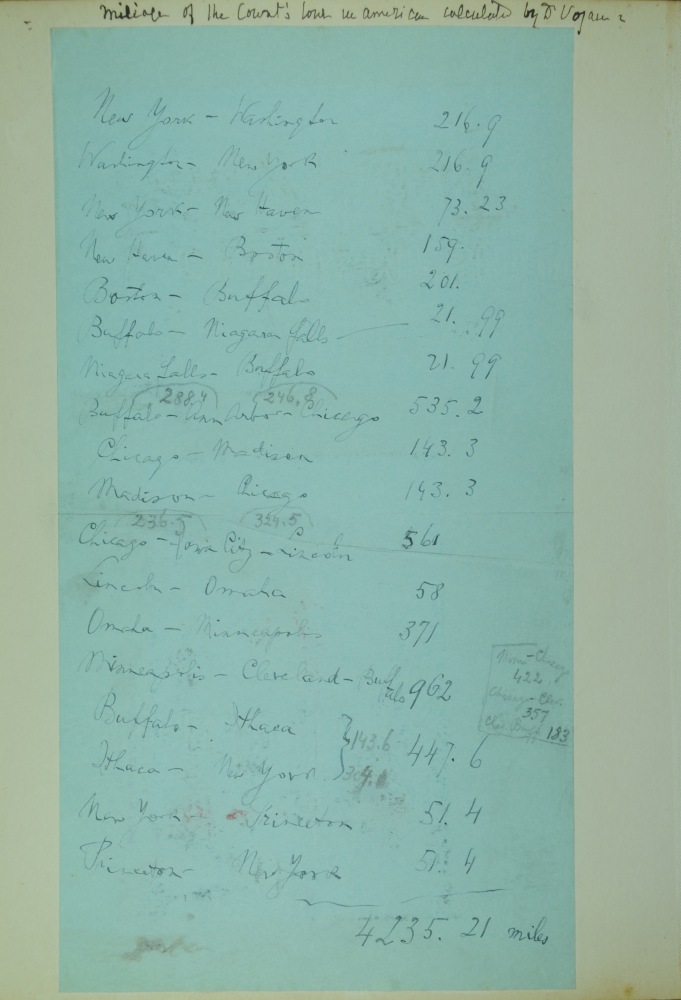 mileage of the Count's tour in american calculated by Dr Vojan
New York - Washington 216.9
Washington - New York 216.9
New York - New Haven 73.23
New Haven - Boston 159.
Boston - Buffalo 201.
Buffalo - Niagara falls 21.99
Niagara Falls - Buffalo 21.99
288.4 246,8
Buffalo - Ann Arbor - Chicago 535.2
Chicago - Madison 143.3
Madison - Chicago 143.3
236.5 324.5
Chicago - Iowa City - Lincoln 561
Lincoln - Omaha 58
Omaha - Minneapolis 371
Minneapolis - Cleveland - Buffalo 962
Minn - Chicago
422
Chicago - Clev.
357
Clev. Buff 183
Buffalo - Ithaca 143.6
447.6
Ithaca - New York
New York - Princeton 51.4
Princeton - New York 51.4
4235.21 miles